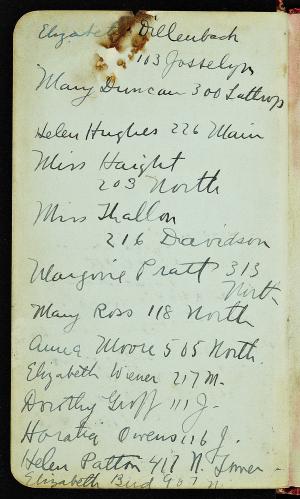 Elizabeth Dillenbach
103 Josselyn
Mary Duncan 300 Lathrop
Helen Hughes 226 Main
Miss Haight
203 North
Miss Thallon
216 Davidson
Margorie Pratt 313
North
Mary Ross 118 North
Anna Moore 505 North.
Elizabeth Wener 217 M.
Dorothy Groff 111 J.
Horatia Owens 116 J.
Helen Patton 417 N. Tower -
Elizabeth Bird 907 N